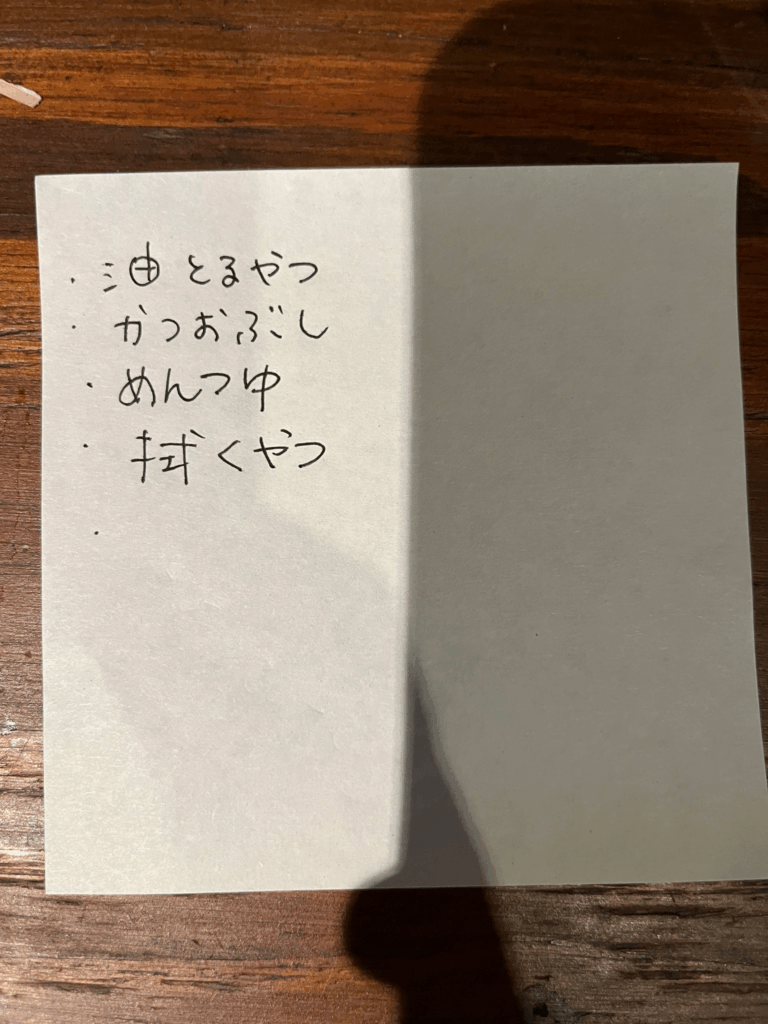 ・油とるやつ
・かつおぶし
・めんつゆ
・拭くやつ
・